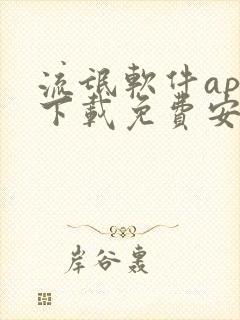 流氓軟件ap
下載免費安
岸谷裏